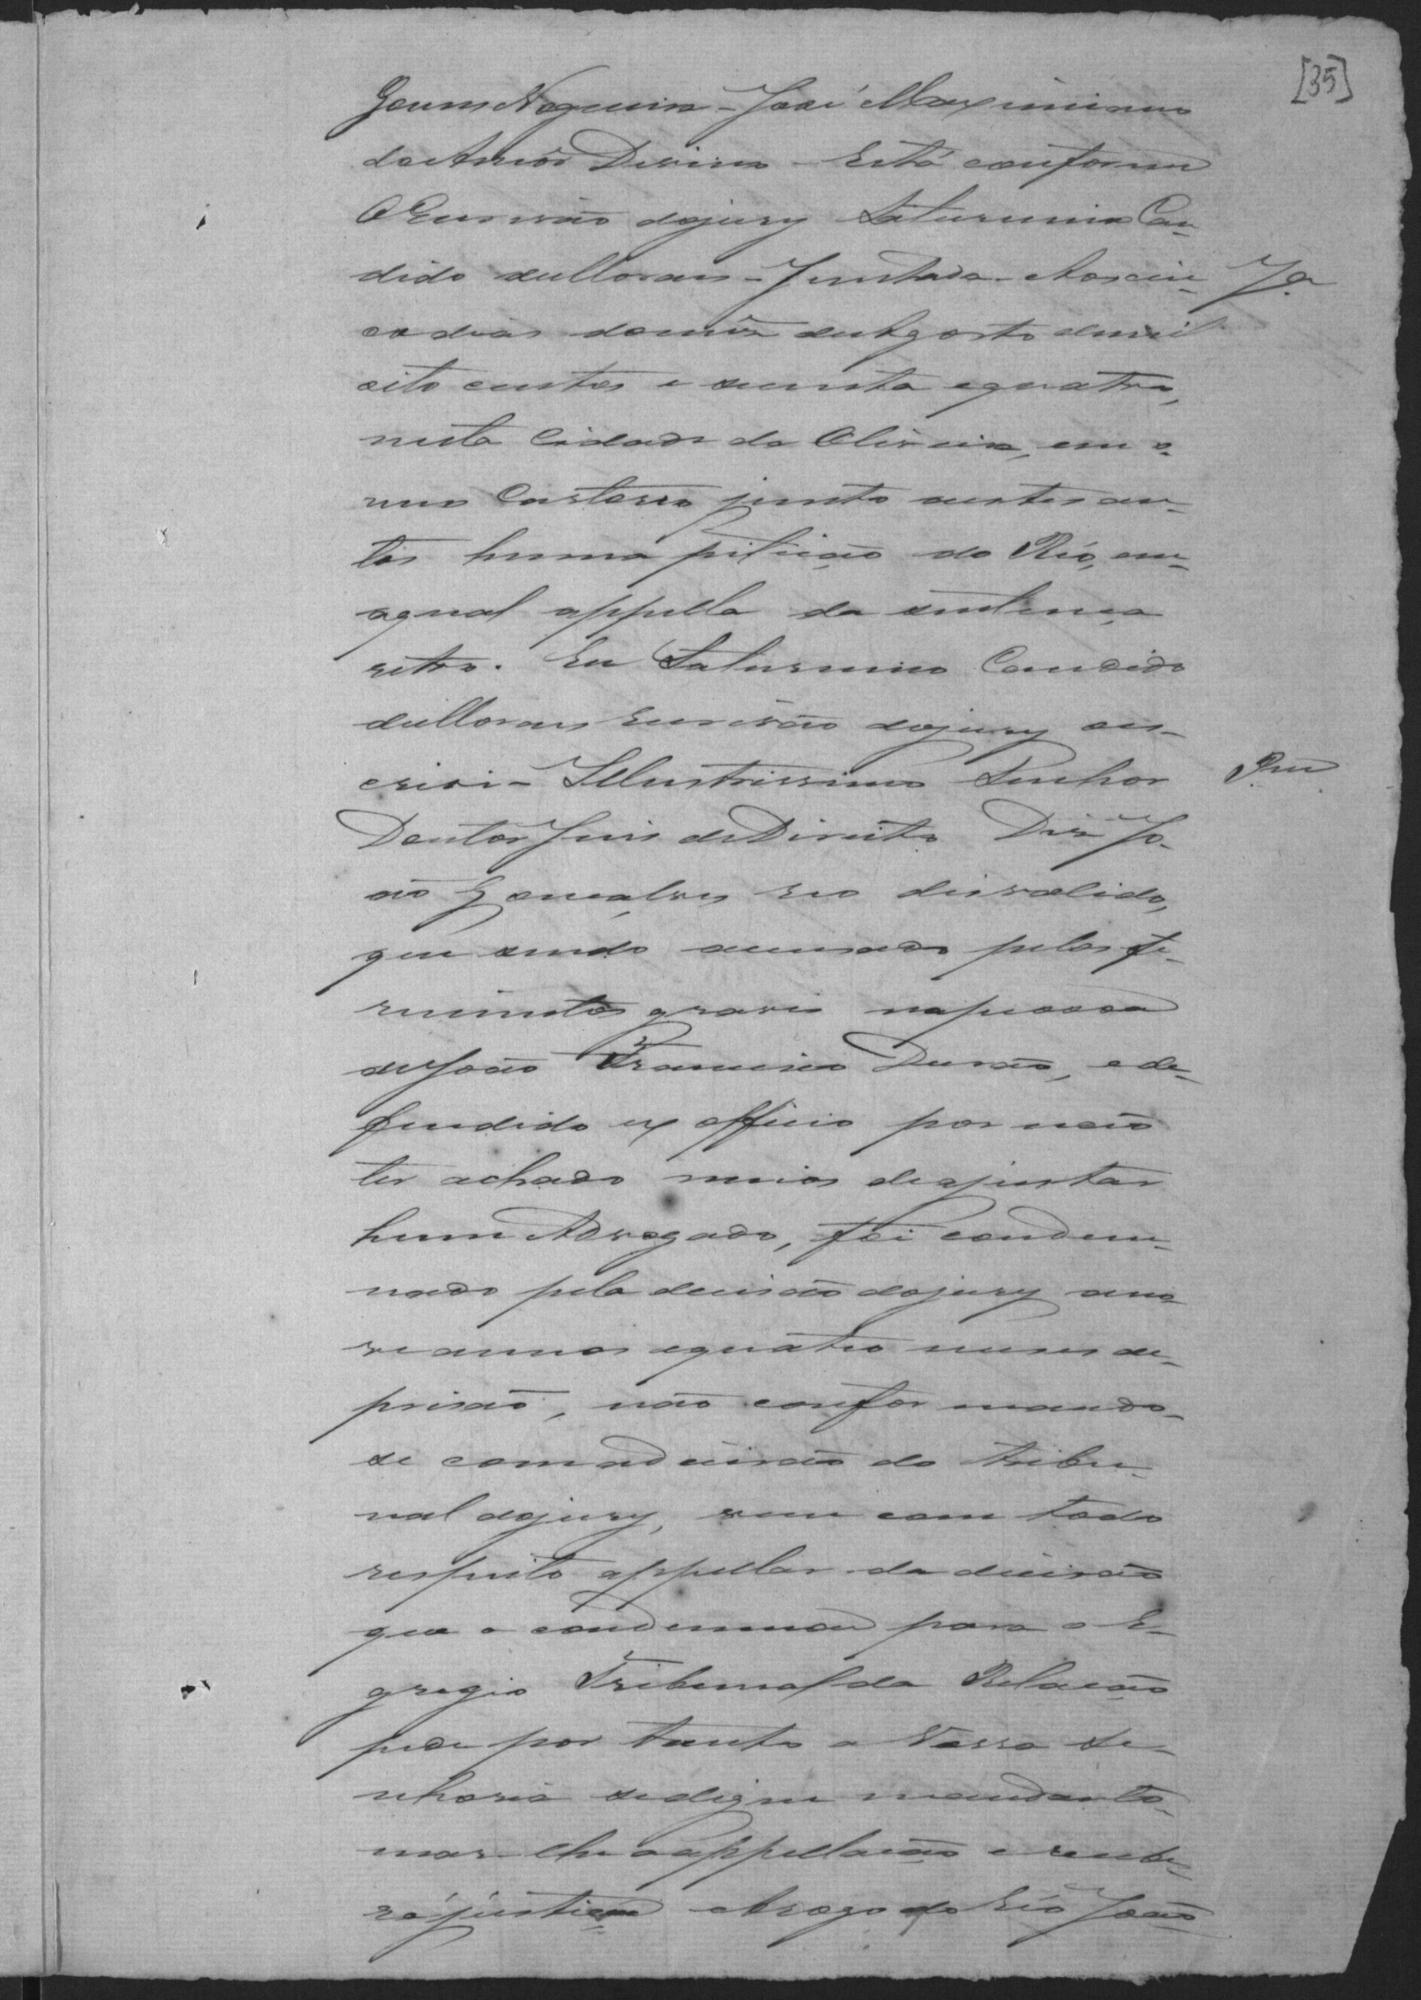 [35]
Gomes Nogueira - José Maximiano
do Amôr Divino - Está conforme
O Escrivão do jury Saturnino Can-
dido de Moraes - Juntada - Aos cin-
J.a
co dias do mês de Agosto de mil
oito centos e secenta e quatro,
nesta Cidade da Oliveira, em o
meu Cartorio junto a estes au-
tos huma petição do Réo, em
a qual appella da sentença
retro. Eu Saturnino Candido
de Moraes Escrivão do jury es-
crivi - Illustrissimo Senhor
P.am
Doutor Juis de Direito Diz Jo-
ão Gonçalves reo disvalido,
que sendo acusado pelos fe-
rimentos graves na pessoa
de João Francisco Durão, e de-
fendido ex officio por não
ter achado meios de ajustar
hum Advogado, foi condem-
nado pela decisão do jury a no-
ve annos e quatro meses de
prisão, não conformando-
se com a decisão do tribu-
nal do jury, vem com todo
respeito appellar da decisão
que o condemnou para o E-
gregio Tribunal da Relação
pede por tanto a Vossa Se-
nhoria se digne mandar to-
mar-lhe a appellação e recebe-
rá justiça Arogo do Réo João